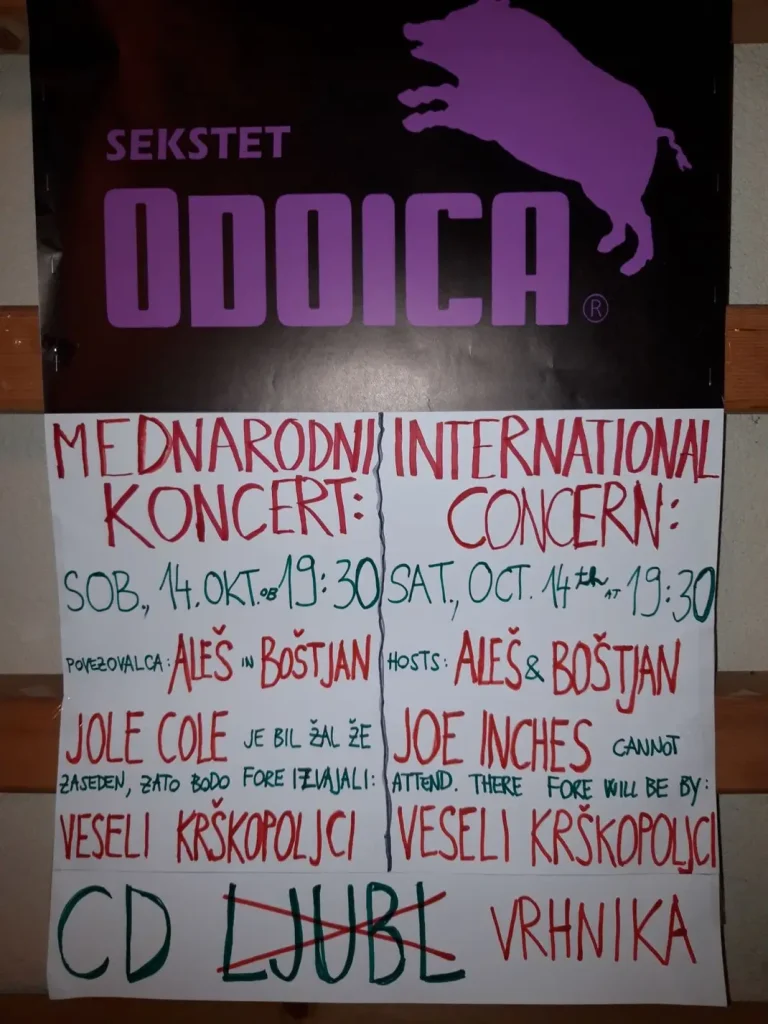 SEKSTET
ODOICA
®
MEDNARODNI
KONCERT:
SOB., 14. OKT. OB 19:30
POVEZOVALCA: ALEŠ IN BOŠTJAN
JOLE COLE JE BIL ŽAL ŽE
ZASEDEN, ZATO BODO FORE IZVAJALI:
VESELI KRŠKOPOLJCI
INTERNATIONAL
CONCERN:
SAT., OCT. 14th AT 19:30
HOSTS: ALEŠ & BOŠTJAN
JOE INCHES CANNOT
ATTEND. THERE FORE WILL BE BY:
VESELI KRŠKOPOLJCI
CD LJUBL VRHNIKA